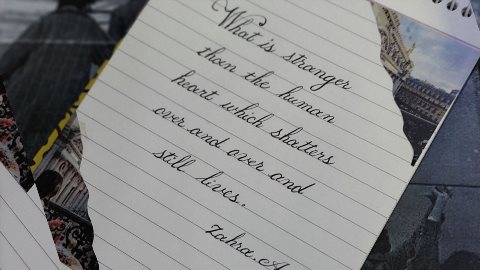 What is stranger
than the human
heart which shatters
over and over and
still lives.
Zahra. A